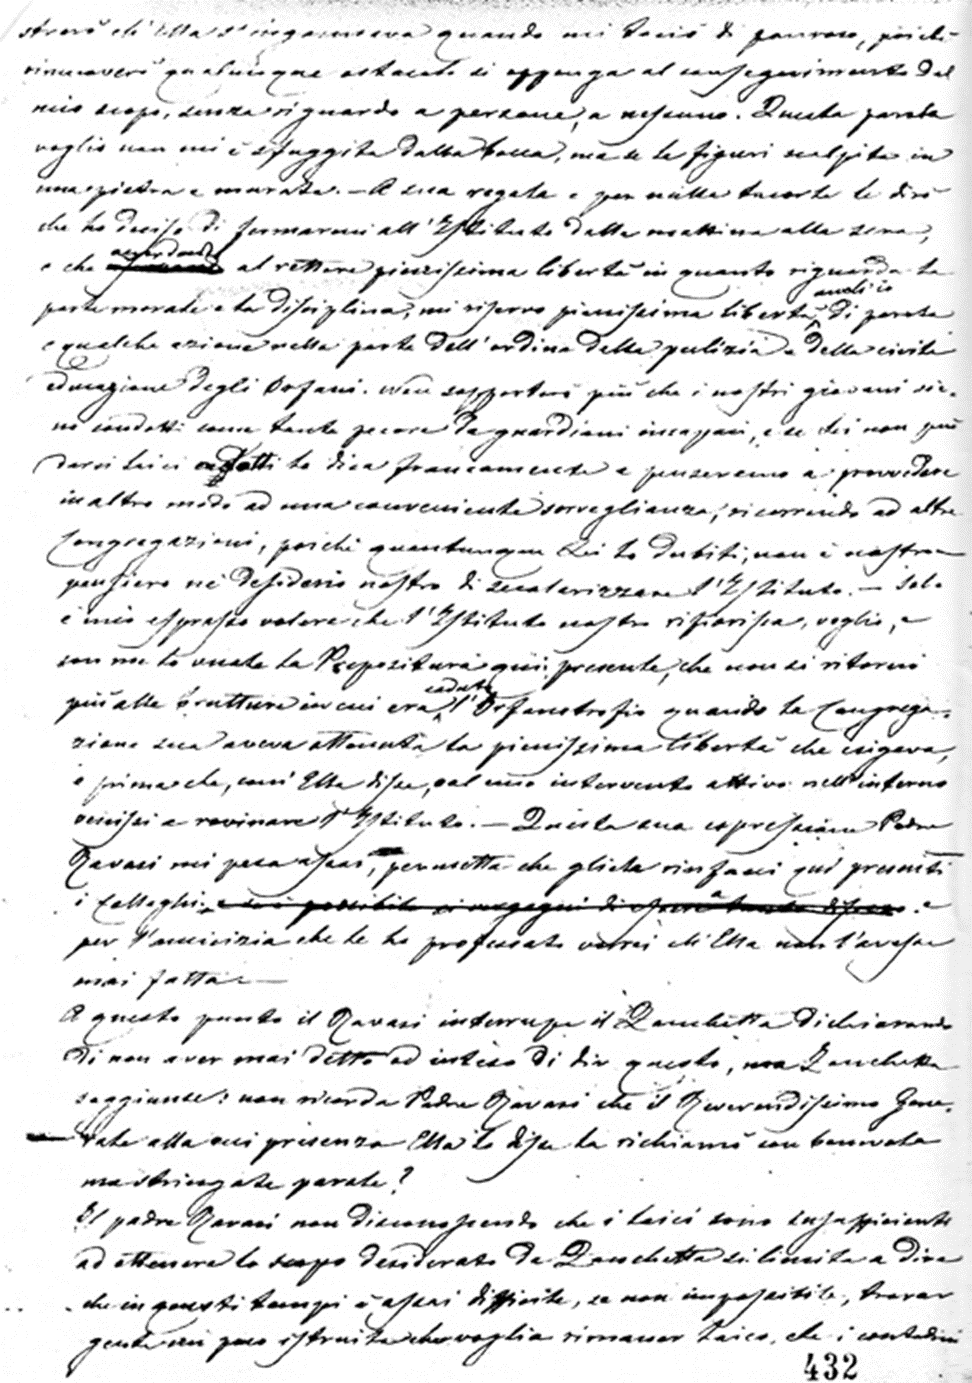 strerò ch'Ella s'ingannava quando mi tacciò di pauroso, poichè
rimuoverò qualunque ostacolo si opponga al conseguimento del
mio scopo, senza riguardo a persone, a nessuno. Questa parola
voglio non mi è sfuggita dalla bocca, ma se la figuri scolpita in
una pietra e murata. — A sua regola e per nulla tacerle le dirò
che ho deciso di fermarmi all'Istituto dalla mattina alla sera,
e che accordando al rettore pienissima libertà in quanto riguarda la
parte morale e la disciplina, mi riservo pienissima libertà anch'io di parola
e qualche azione nella parte dell'ordine della pulizia e della civile
educazione degli Orfani. Non sopporterò più che i nostri giovani sie-
no condotti come tante pecore da guardiani incapaci, e se Lei non può
darci laici adatti lo dica francamente e penseremo a provvedere
in altro modo ad una conveniente sorveglianza, ricorrendo ad altre
Congregazioni, poichè quantunque Lei lo dubiti, non è nostro
pensiero nè desiderio nostro di secolarizzare l'Istituto. — Solo
è mio espresso volere che l'Istituto nostro rifiorisca, voglio, e
con me lo vuole la Prepositura qui presente, che non si ritorni
più alle brutture in cui era caduto l'Orfanotrofio quando la Congrega-
zione sua aveva ottenuta la pienissima libertà che esigeva,
e prima che, com'Ella disse, col mio intervento attivo nell'interno
venissi a rovinare l'Istituto. — Questa sua espressione Padre
Ravasi mi pesa assai, permetta che gliela rinfacci qui presenti
i Colleghi, e
per l'amicizia che le ho professato vorrei ch'Ella non l'avesse
mai fatta. —
A questo punto il Ravasi interrupe il Zanchetta dichiarando
di non aver mai detto ed inteso di dir questo, ma Zanchetta
soggiunse: non ricorda Padre Ravasi che il Reverendissimo Gene-
rale alla cui presenza Ella lo disse la richiamò con benevola
ma stringate parole?
Il padre Ravasi non disconoscendo che i laici sono insufficienti
ad ottenere lo scopo desiderato da Zanchetta si limita a dire
che in questi tempi è assai difficile, se non impossibile, trovar
gente un poco istruita che voglia rimaner laico, che i contadini
432